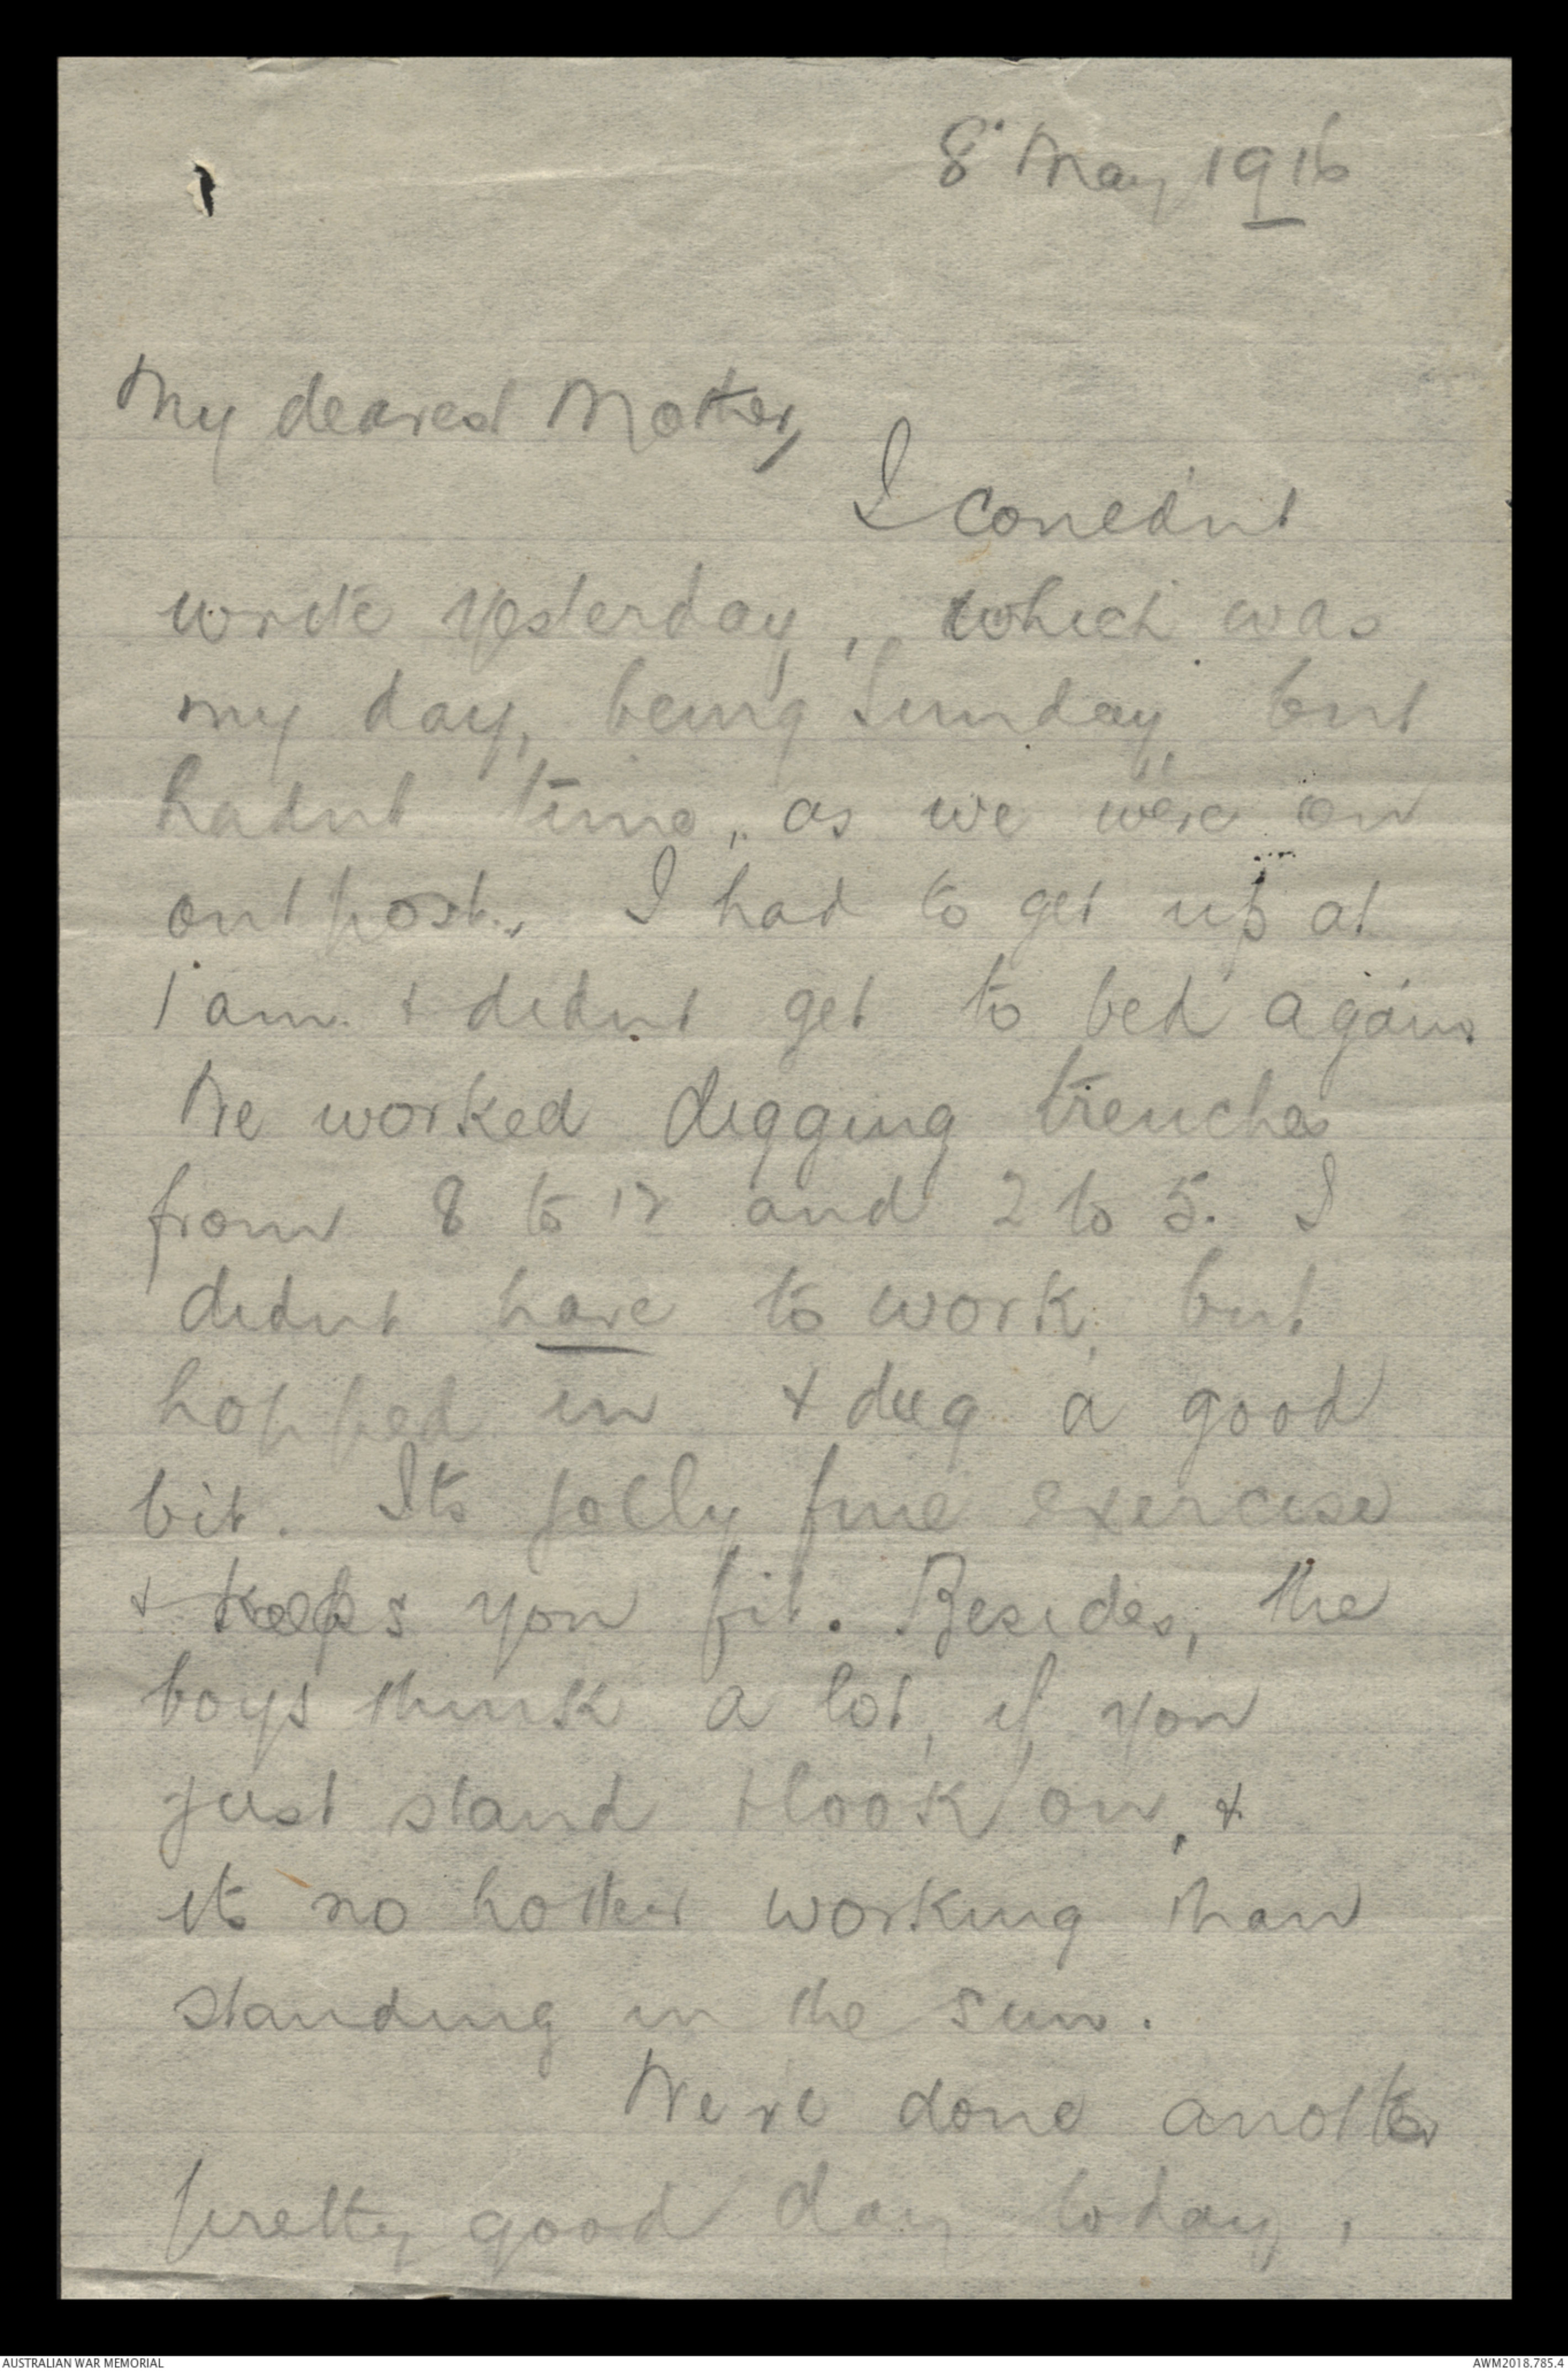 8 May 1916
My dearest Mother,
I couldnt
write yesterday, which was
my day, being Sunday, but
hadnt time, as we were on
outpost. I had to get up at
1 am. & didnt get to bed again.
We worked digging trenches
from 8 to 12 and 2 to 5. I
didnt have to work, but
hopped in & dug a good
bit. Its jolly fine exercise
& keeps you fit. Besides, the
boys think a lot, if you
just stand & look on, &
its no hotter working than
standing in the sun.
We've done another
pretty good day today,
AUSTRALIAN WAR MEMORIAL
AWM2018.785.4